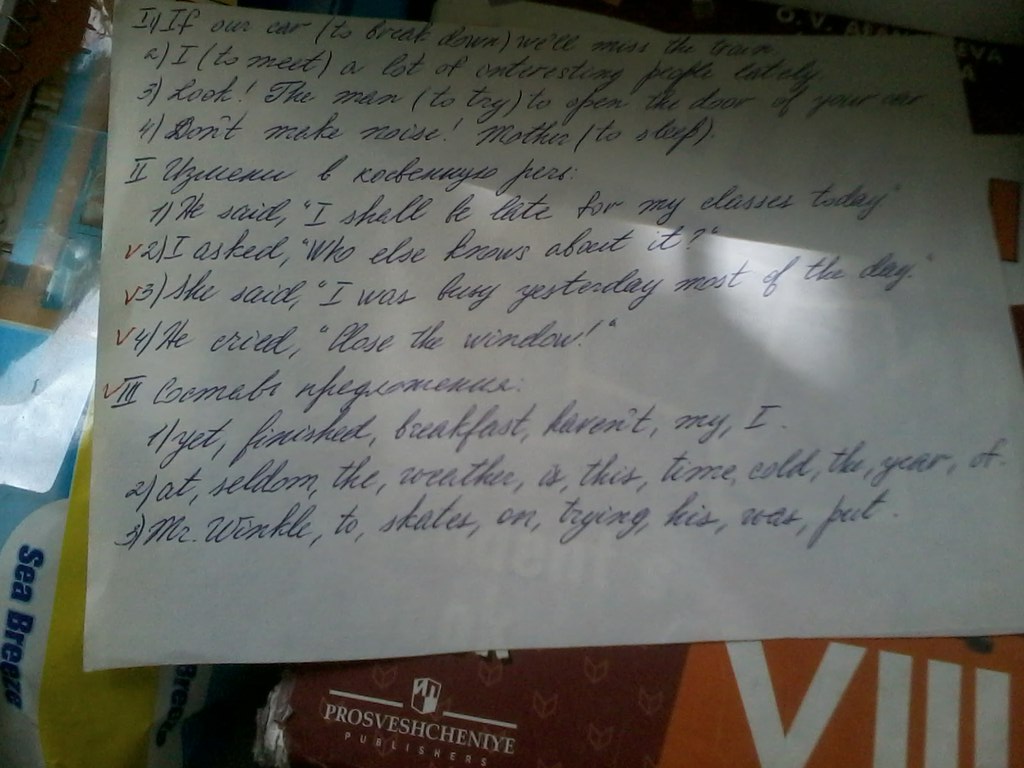 I 1) If our car (to break down) we'll miss the train.
2) I (to meet) a lot of interesting people lately.
3) Look! The man (to try) to open the door of your car
4) Don't make noise! Mother (to sleep).
II Измени в косвенную речь:
1) He said, "I shall be late for my classes today"
2) I asked, "Who else knows about it?"
3) She said, "I was busy yesterday most of the day."
4) He cried, "Close the window!"
III Составь предложения:
1) yet, finished, breakfast, haven't, my, I.
2) at, seldom, the, weather, is, this, time, cold, the, year, of.
3) Mr. Winkle, to, skates, on, trying, his, was, put.
Sea Breeze
PROSVESHCHENIYE
PUBLISHERS
VIII